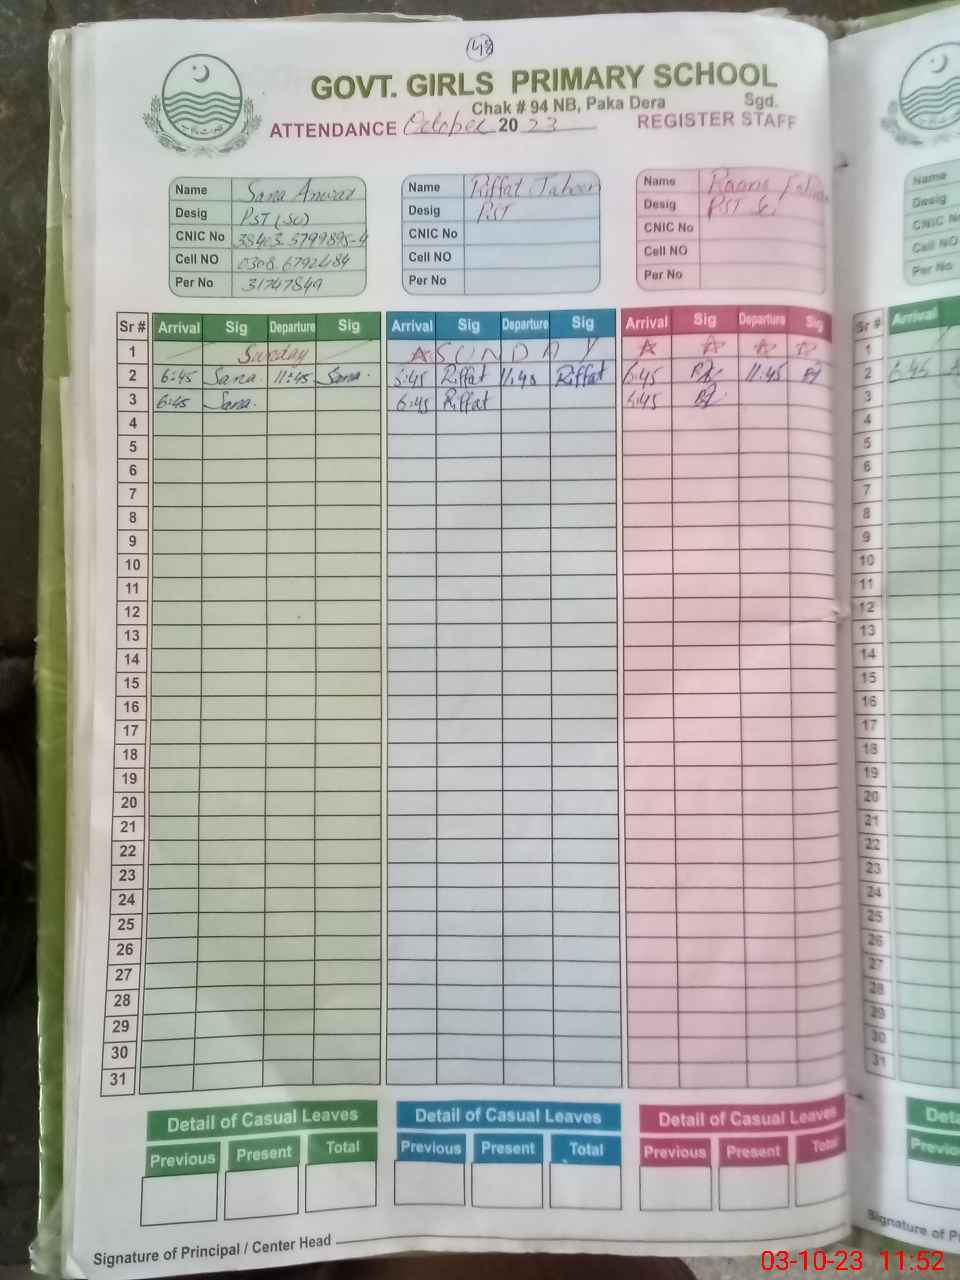 48
GOVT. GIRLS PRIMARY SCHOOL
Chak # 94 NB, Paka Dera Sgd.
ATTENDANCE October 2023 REGISTER STAFF
Name Sana Anwar Name Riffat Name
Desig PST (SC) Desig PST Desig PST
CNIC No CNIC No CNIC No
Cell NO 0308.6792484 Cell NO Cell NO
Per No 31747849 Per No Per No
Sr # Arrival Sig Departure Sig Arrival Sig Departure Sig Arrival Sig Departure Sig
1 Sunday SUNDAY
2 6:45 Sana. 11:45 Sana. 6:45 Riffat 11:45 Riffat 6:45 11:45
3 6:45 Sana. 6:45 Riffat 6:45
4
5
6
7
8
9
10
11
12
13
14
15
16
17
18
19
20
21
22
23
24
25
26
27
28
29
30
31
Detail of Casual Leaves Detail of Casual Leaves Detail of Casual Leaves
Previous Present Total Previous Present Total Previous Present Total
Signature of Principal / Center Head
Name
Desig
CNIC
Cell NO
Per No
Sr # Arrival
1
2 6:45
3
4
5
6
7
8
9
10
11
12
13
14
15
16
17
18
19
20
21
22
23
24
25
26
27
28
29
30
31
Previo
Signature of P
03-10-23 11:52